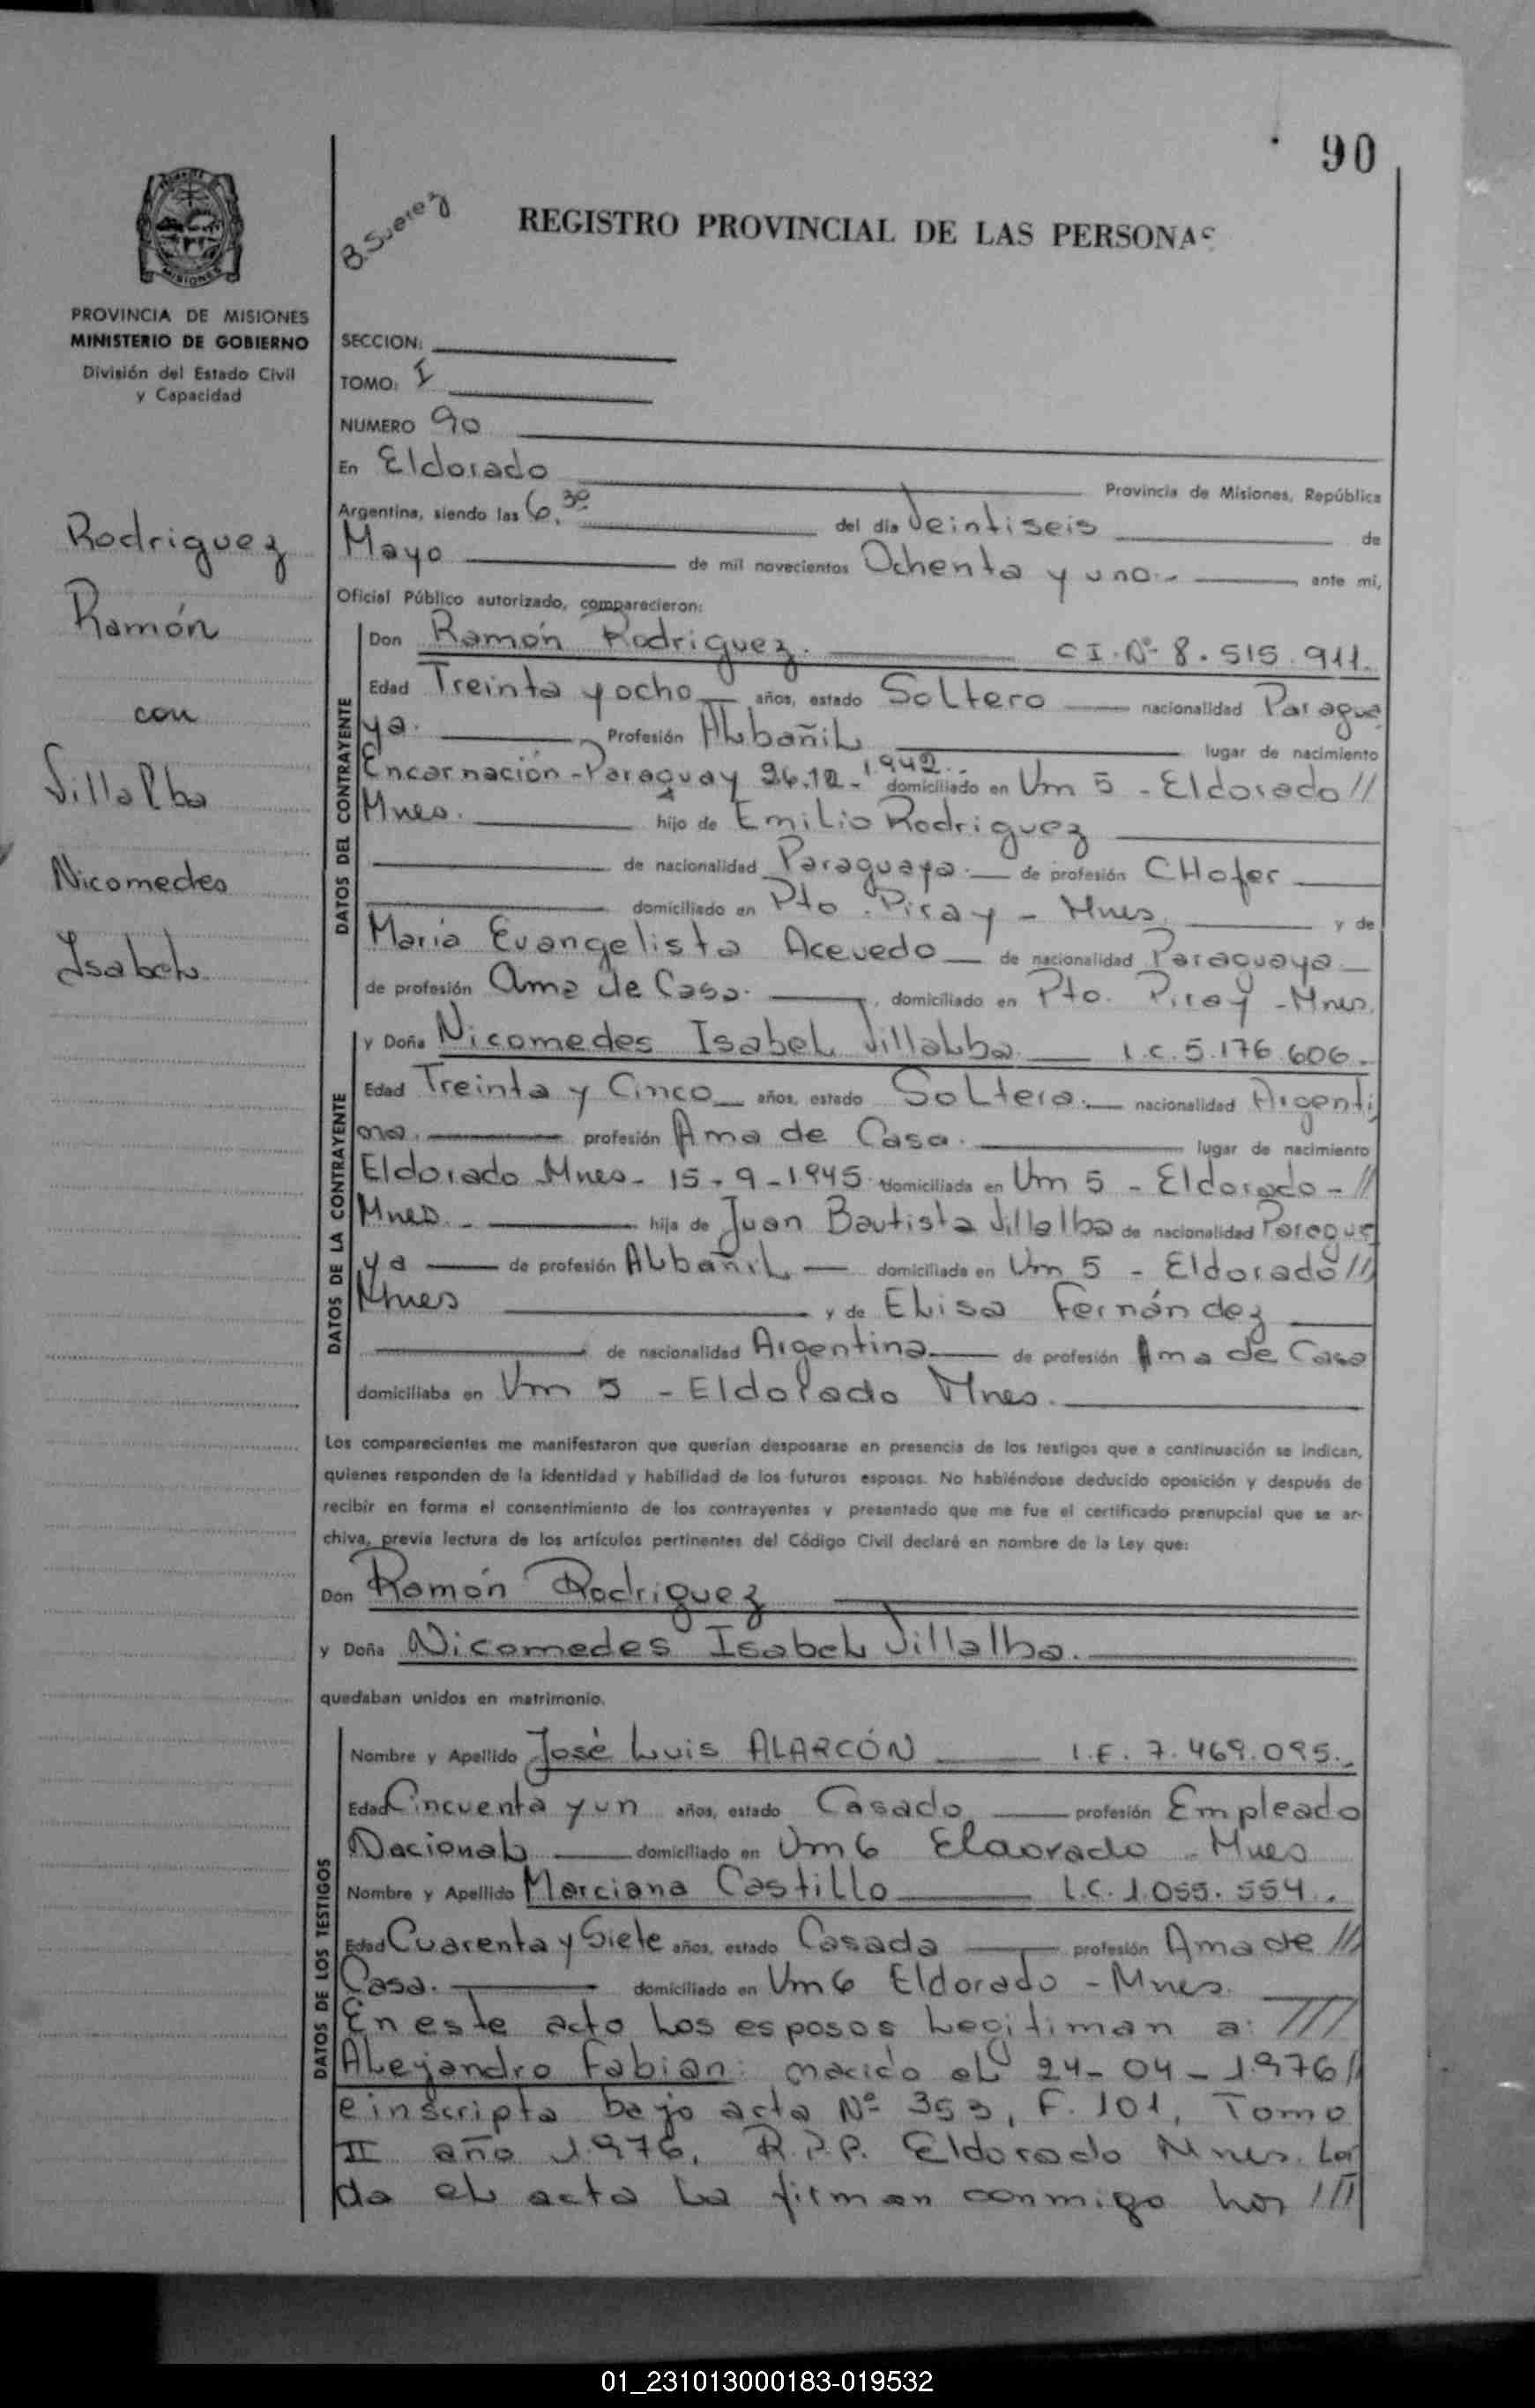 90
B. Suarez
REGISTRO PROVINCIAL DE LAS PERSONAS
MISIONES
PROVINCIA DE MISIONES
MINISTERIO DE GOBIERNO
División del Estado Civil
y Capacidad
Rodriguez
Ramón
con
Villalba
Nicomedes
Isabel
SECCION:
TOMO: I
NUMERO 90
En Eldorado Provincia de Misiones, República
Argentina, siendo las 6,30 del día Veintiseis de
Mayo de mil novecientos Ochenta y uno.- ante mí,
Oficial Público autorizado, comparecieron:
DATOS DEL CONTRAYENTE
Don Ramón Rodriguez. C I. Nº 8.515.911.
Edad Treinta y ocho años, estado Soltero nacionalidad Paragua
ya. Profesión Albañil lugar de nacimiento
Encarnación-Paraguay 26.12.1942.- domiciliado en Km 5 - Eldorado //
Mnes. hijo de Emilio Rodriguez
de nacionalidad Paraguaya. de profesión CHofer
domiciliado en Pto. Piray - Mnes. y de
María Evangelista Acevedo de nacionalidad Paraguaya
de profesión Ama de Casa. domiciliado en Pto. Piray - Mnes.
DATOS DE LA CONTRAYENTE
y Doña Nicomedes Isabel Villalba L.C. 5.176.606.
Edad Treinta y Cinco años, estado Soltera. nacionalidad Argenti
na. profesión Ama de Casa. lugar de nacimiento
Eldorado Mnes- 15-9-1945 domiciliada en Km 5 - Eldorado - //
Mnes. hija de Juan Bautista Villalba de nacionalidad Paragua
ya de profesión Albañil domiciliada en Km 5 - Eldorado //
Mnes y de Elisa Fernández
de nacionalidad Argentina de profesión Ama de Casa
domiciliaba en Km 5 - Eldorado Mnes.
Los comparecientes me manifestaron que querían desposarse en presencia de los testigos que a continuación se indican,
quienes responden de la identidad y habilidad de los futuros esposos. No habiéndose deducido oposición y después de
recibir en forma el consentimiento de los contrayentes y presentado que me fue el certificado prenupcial que se ar-
chiva, previa lectura de los artículos pertinentes del Código Civil declaré en nombre de la Ley que:
Don Ramón Rodriguez
y Doña Nicomedes Isabel Villalba.
quedaban unidos en matrimonio.
DATOS DE LOS TESTIGOS
Nombre y Apellido José Luis ALARCÓN L.E. 7.469.095.
Edad Cincuenta y un años, estado Casado profesión Empleado
Nacional domiciliado en Km 6 Eldorado - Mnes
Nombre y Apellido Marciana Castillo L.C. 1.055.554.
Edad Cuarenta y Siete años, estado Casada profesión Ama de //
Casa. domiciliado en Km 6 Eldorado - Mnes.
En este acto Los esposos Legitiman a: ///
Alejandro Fabian: nacido el 24-04-1976 //
e inscripto bajo acta Nº 353, F. 101, Tomo
II año 1976, R.P.P. Eldorado Mnes. Leí
da el acta la firman conmigo los ///
01_231013000183-019532